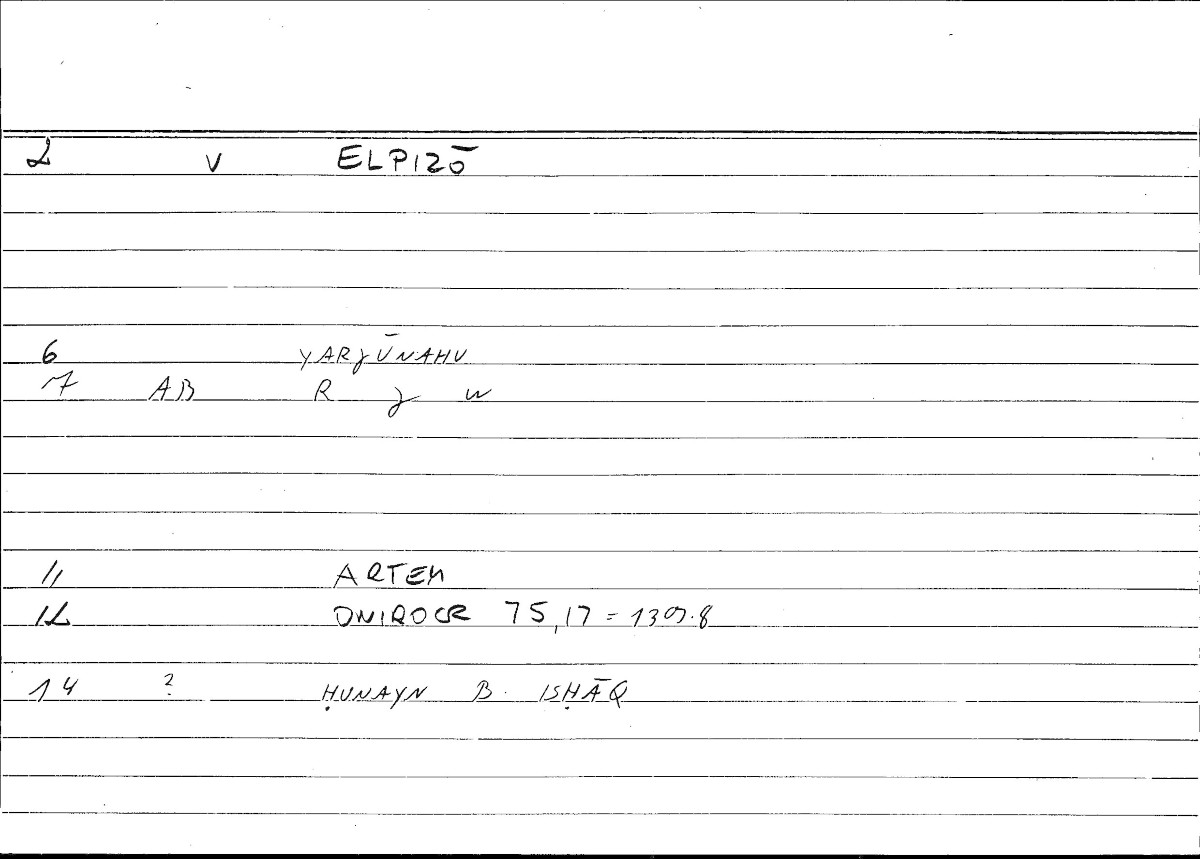 2 V ELPIZŌ
6 YARJŪNAHU
7 AB R J W
11 ARTEM
12 ONIROCR 75,17 = 139.8
14 ? ḤUNAYN B. ISḤĀQ